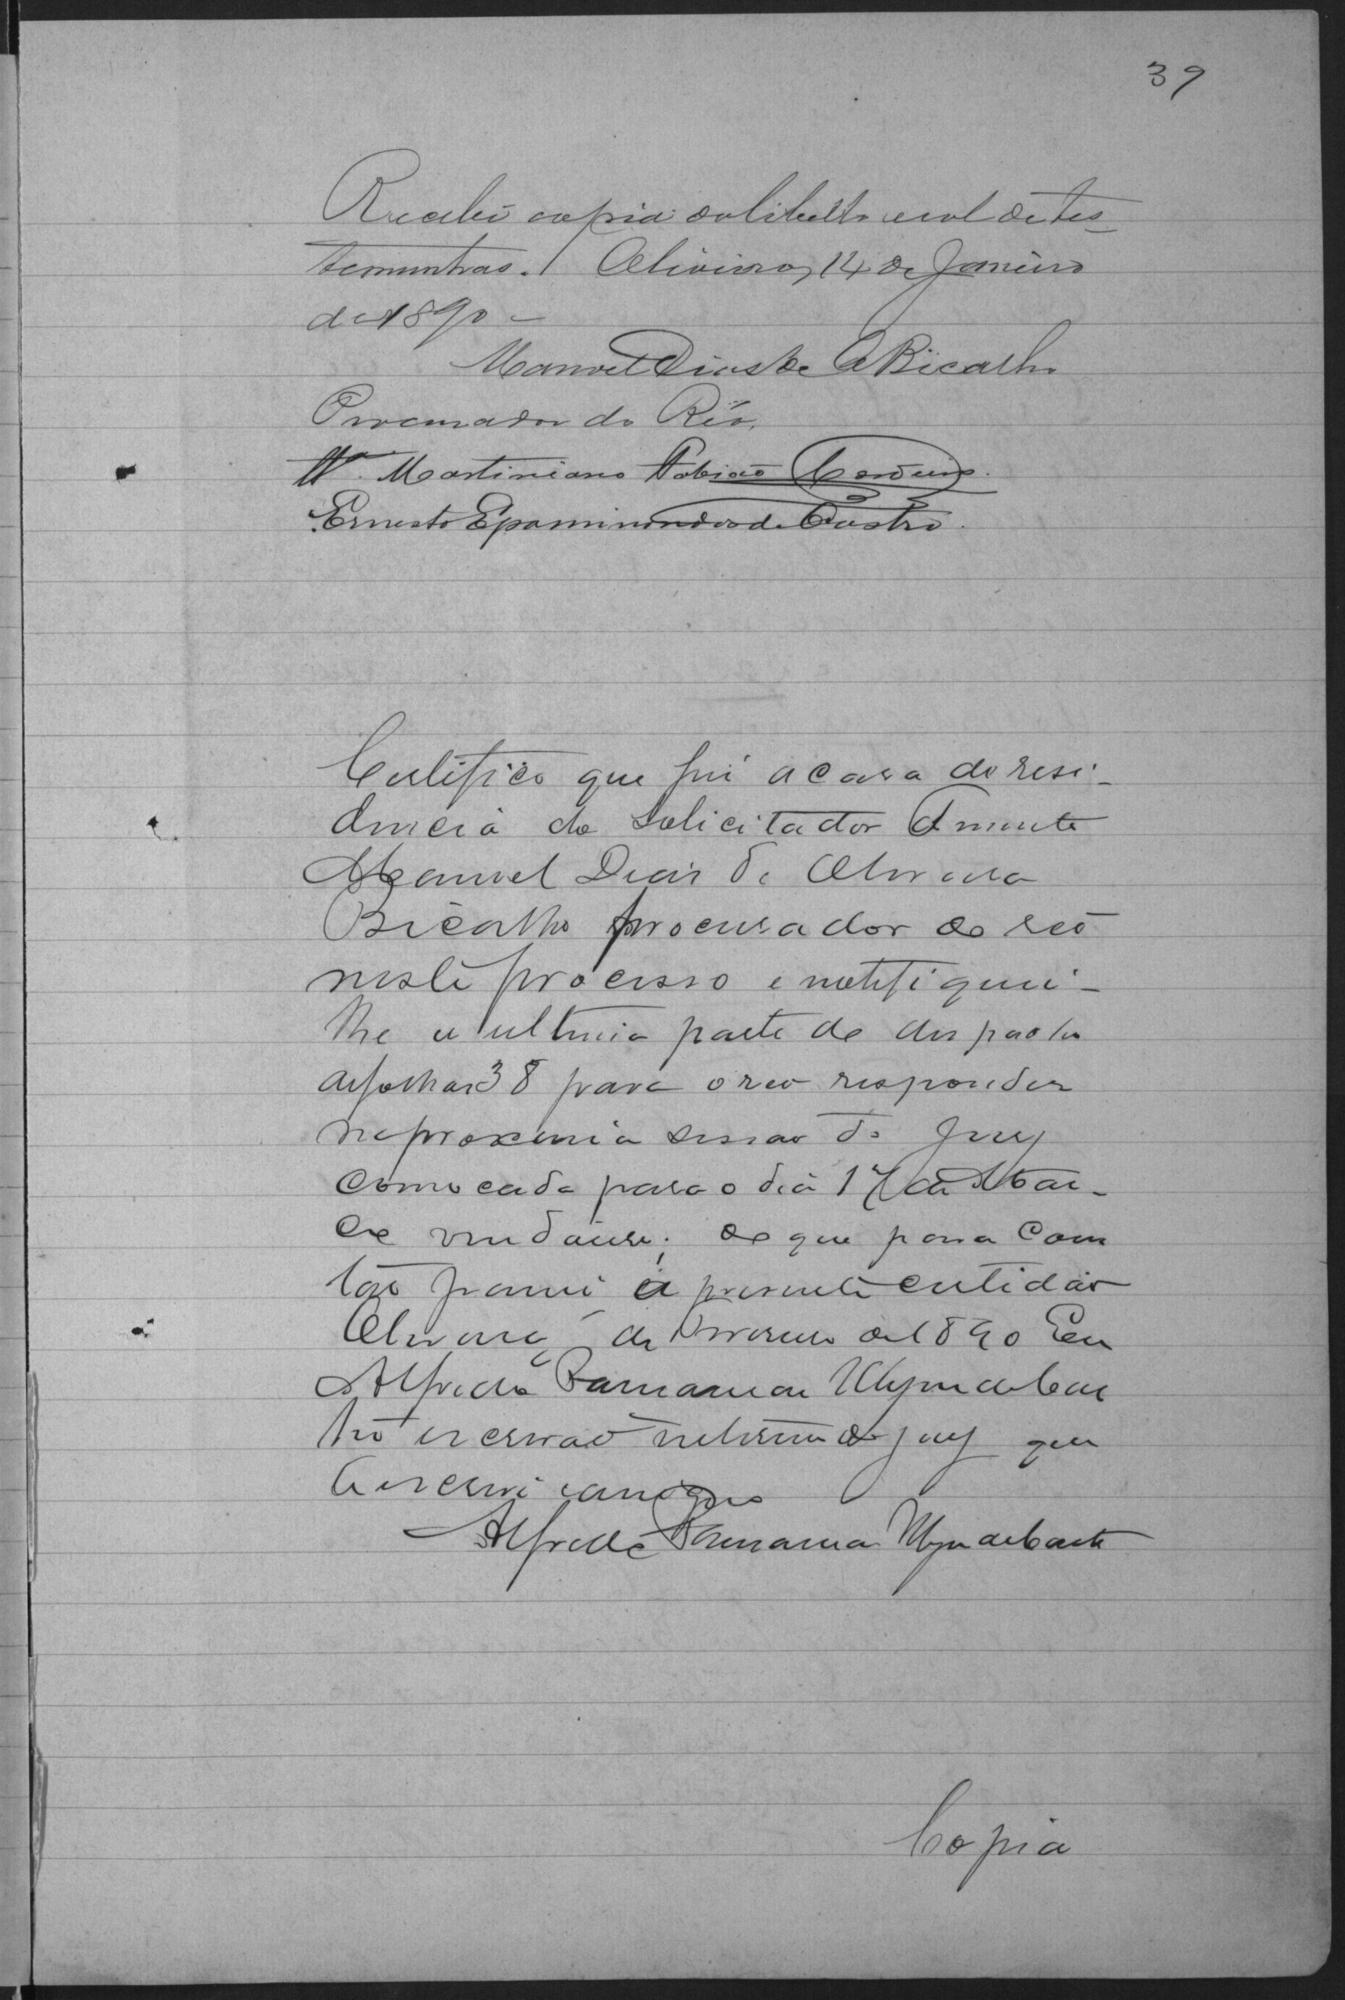 39
Recebi copia do libello e rol de tes-
temunhas. Oliveira, 14 de Janeiro
de 1890 –
Manoel Dias de O Bicalho
Procurador do Réo,
Martiniano
Ernesto Epaminondas de Castro.
Certifico que fui a casa de resi-
dencia do Solicitador
Manuel Dias de Oliveira
Bicalho procurador do reo
neste processo e notifiquei-
lhe a ultima parte do despacho
de folhas 38 para o reo responder
na proxima sessão do Jury
convocada para o dia 17 de Mar-
ço vindouro; do que para cons
tar passei a presente certidão
Oliveira, de de 1890 Eu
Alfredo
escrivão interino do jury que
o escrevi e assigno
Alfredo
Copia